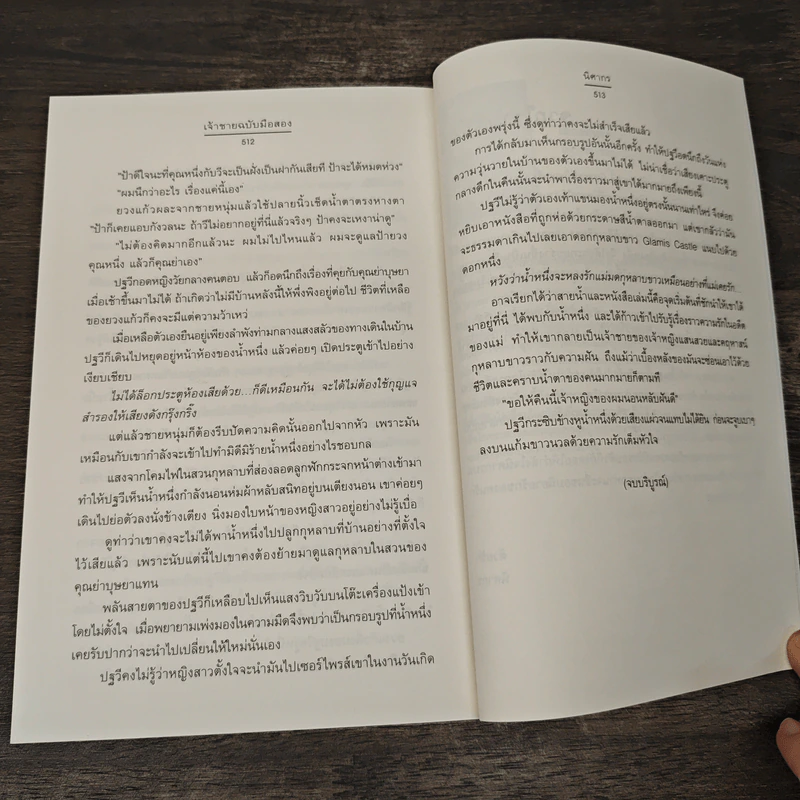 เจ้าชายฉบับมือสอง
512
"ป้าดีใจนะที่คุณหนึ่งกับวีจะเป็นฝั่งเป็นฝากันเสียที ป้าจะได้หมดห่วง"
"ผมนึกว่าอะไร เรื่องแค่นี้เอง"
ยวงแก้วผละจากชายหนุ่มแล้วใช้ปลายนิ้วเช็ดน้ำตาตรงหางตา
"ป้าก็เคยแอบกังวลนะ ถ้าวีไม่อยากอยู่ที่นี่แล้วจริงๆ ป้าคงจะเหงาน่าดู"
"ไม่ต้องคิดมากอีกแล้วนะ ผมไม่ไปไหนแล้ว ผมจะดูแลป้ายวง
คุณหนึ่ง แล้วก็คุณย่าเอง"
ปฐวีกอดหญิงวัยกลางคนตอบ แล้วก็อดนึกถึงเรื่องที่คุยกับคุณย่าบุษยา
เมื่อเช้าขึ้นมาไม่ได้ ถ้าเกิดว่าไม่มีบ้านหลังนี้ให้พึ่งพิงอยู่ต่อไป ชีวิตที่เหลือ
ของยวงแก้วก็คงจะมีแต่ความว้าเหว่
เมื่อเหลือตัวเองยืนอยู่เพียงลำพังท่ามกลางแสงสลัวของทางเดินในบ้าน
ปฐวีก็เดินไปหยุดอยู่หน้าห้องของน้ำหนึ่ง แล้วค่อยๆ เปิดประตูเข้าไปอย่าง
เงียบเชียบ
ไม่ได้ล็อกประตูห้องเสียด้วย...ก็ดีเหมือนกัน จะได้ไม่ต้องใช้กุญแจ
สำรองให้เสียงดังกรุ๊งกริ๊ง
แต่แล้วชายหนุ่มก็ต้องรีบปัดความคิดนั้นออกไปจากหัว เพราะมัน
เหมือนกับเขากำลังจะเข้าไปทำมิดีมิร้ายน้ำหนึ่งอย่างไรชอบกล
แสงจากโคมไฟในสวนกุหลาบที่ส่องลอดลูกฟักกระจกหน้าต่างเข้ามา
ทำให้ปฐวีเห็นน้ำหนึ่งกำลังนอนห่มผ้าหลับสนิทอยู่บนเตียงนอน เขาค่อยๆ
เดินไปย่อตัวลงนั่งข้างเตียง นิ่งมองใบหน้าของหญิงสาวอยู่อย่างไม่รู้เบื่อ
ดูท่าว่าเขาคงจะไม่ได้พาน้ำหนึ่งไปปลูกกุหลาบที่บ้านอย่างที่ตั้งใจ
ไว้เสียแล้ว เพราะนับแต่นี้ไปเขาคงต้องย้ายมาดูแลกุหลาบในสวนของ
คุณย่าบุษยาแทน
พลันสายตาของปฐวีก็เหลือบไปเห็นแสงวิบวับบนโต๊ะเครื่องแป้งเข้า
โดยไม่ตั้งใจ เมื่อพยายามเพ่งมองในความมืดจึงพบว่าเป็นกรอบรูปที่น้ำหนึ่ง
เคยรับปากว่าจะนำไปเปลี่ยนให้ใหม่นั่นเอง
ปฐวีคงไม่รู้ว่าหญิงสาวตั้งใจจะนำมันไปเซอร์ไพรส์เขาในงานวันเกิด
นิศากร
513
ของตัวเองพรุ่งนี้ ซึ่งดูท่าว่าคงจะไม่สำเร็จเสียแล้ว
การได้กลับมาเห็นกรอบรูปอันนั้นอีกครั้ง ทำให้ปฐวีอดนึกถึงวันแห่ง
ความวุ่นวายในบ้านของตัวเองขึ้นมาไม่ได้ ไม่น่าเชื่อว่าเสียงเคาะประตู
กลางดึกในคืนนั้นจะนำพาเรื่องราวมาสู่เขาได้มากมายถึงเพียงนี้
ปฐวีไม่รู้ว่าตัวเองเท้าแขนมองน้ำหนึ่งอยู่ตรงนั้นนานเท่าไหร่ จึงค่อย
หยิบเอาหนังสือที่ถูกห่อด้วยกระดาษสีน้ำตาลออกมา แต่เขากลัวว่ามัน
จะธรรมดาเกินไปเลยเอาดอกกุหลาบขาว Glamis Castle แนบไปด้วย
ดอกหนึ่ง
หวังว่าน้ำหนึ่งจะหลงรักแม่มดกุหลาบขาวเหมือนอย่างที่แม่เคยรัก
อาจเรียกได้ว่าสายน้ำและหนังสือเล่มนี้คือจุดเริ่มต้นที่ชักนำให้เขาได้
มาอยู่ที่นี่ ได้พบกับน้ำหนึ่ง และได้ก้าวเข้าไปรับรู้เรื่องราวความรักในอดีต
ของแม่ ทำให้เขากลายเป็นเจ้าชายของเจ้าหญิงแสนสวยและคฤหาสน์
กุหลาบขาวราวกับความฝัน ถึงแม้ว่าเบื้องหลังของมันจะซ่อนเอาไว้ด้วย
ชีวิตและคราบน้ำตาของคนมากมายก็ตามที
"ขอให้คืนนี้เจ้าหญิงของผมนอนหลับฝันดี"
ปฐวีกระซิบข้างหูน้ำหนึ่งด้วยเสียงแผ่วจนแทบไม่ได้ยิน ก่อนจะจูบเบาๆ
ลงบนแก้มขาวนวลด้วยความรักเต็มหัวใจ
(จบบริบูรณ์)